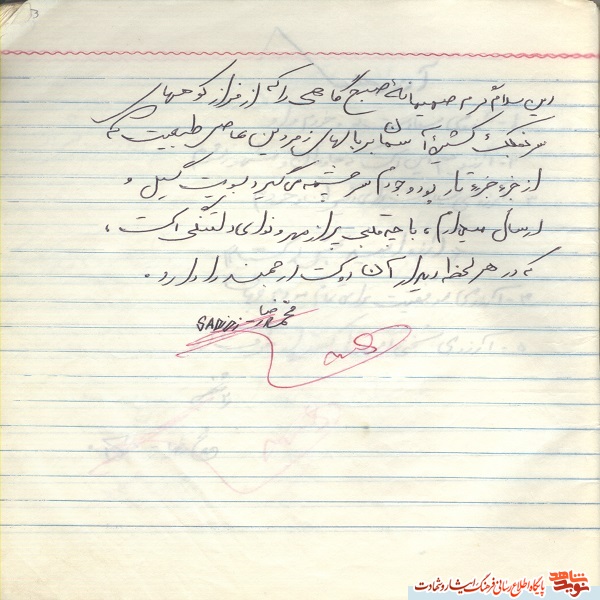 این سلام گرم صمیمانهٔ صبح گاهی را که از فراز کوههای
سر بفلک کشیدهٔ آسمان بر بالهای زمردین طبیعت که
از جزء جزء تار پود وجودم سرچشمه می‌گیرد بسویت گسیل و
ارسال میدارم، با قلبی پر از مهر و دلتنگی است،
که در هر لحظه دیدار آن دوست ارجمند را دارد.
محمدرضا
پایگاه اطلاع رسانی فرهنگ ایثار و شهادت
نوید شاهد